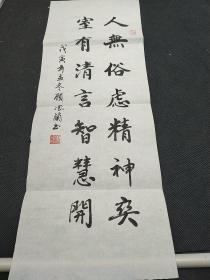 人無俗慮精神爽
室有清言智慧開
戊寅年孟冬顾
书